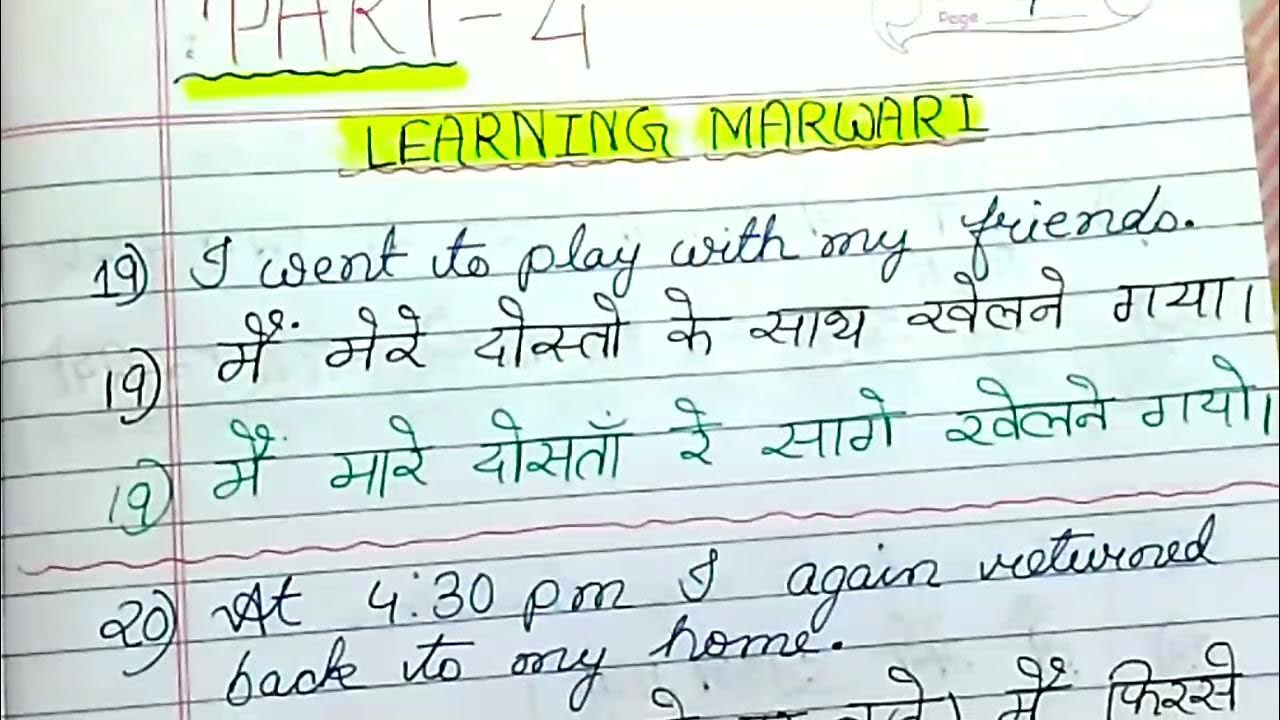 PART-4
Page
LEARNING MARWARI
19) I went to play with my friends.
19) मैं मेरे दोस्तो के साथ खेलने गया।
19) मैं मारे दोसताँ रे सागे खेलने गयो।
20) At 4:30 pm I again returned
back to my home.
मैं फिरसे